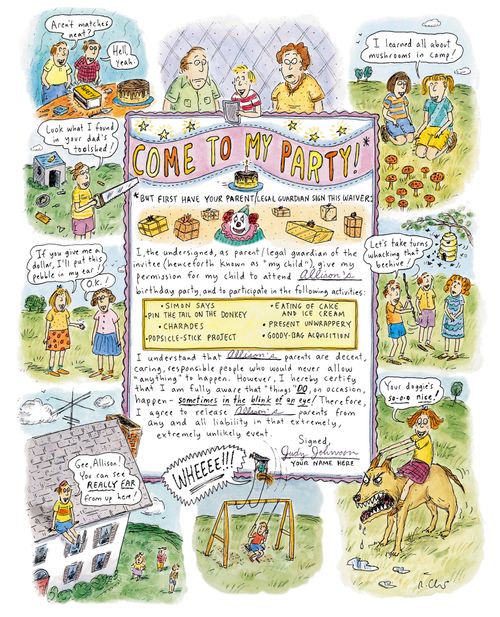 Aren't matches
neat?
Hell,
yeah.
I learned all about
mushrooms in camp!
Look what I found
in your dad's
toolshed!
COME TO MY PARTY!*
*BUT FIRST HAVE YOUR PARENT/LEGAL GUARDIAN SIGN THIS WAIVER:
If you give me a
dollar, I'll put this
pebble in my ear!
O.K.
Let's take turns
whacking that
beehive!
I, the undersigned, as parent/legal guardian of the
invitee (henceforth known as "my child"), give my
permission for my child to attend Allison's
birthday party, and to participate in the following activities:
• SIMON SAYS
• PIN THE TAIL ON THE DONKEY
• CHARADES
• POPSICLE-STICK PROJECT
• EATING OF CAKE
AND ICE CREAM
• PRESENT UNWRAPPERY
• GOODY-BAG ACQUISITION
I understand that Allison's parents are decent,
caring, responsible people who would never allow
"anything" to happen. However, I hereby certify
that I am fully aware that "things" DO, on occasion,
happen – sometimes in the blink of an eye! Therefore,
I agree to release Allison's parents from
any and all liability in that extremely,
extremely unlikely event.
Signed,
Judy Johnson
YOUR NAME HERE
Gee, Allison!
You can see
REALLY FAR
from up here!
WHEEEE!!!
Your doggie's
so-o-o nice!
R. Chast